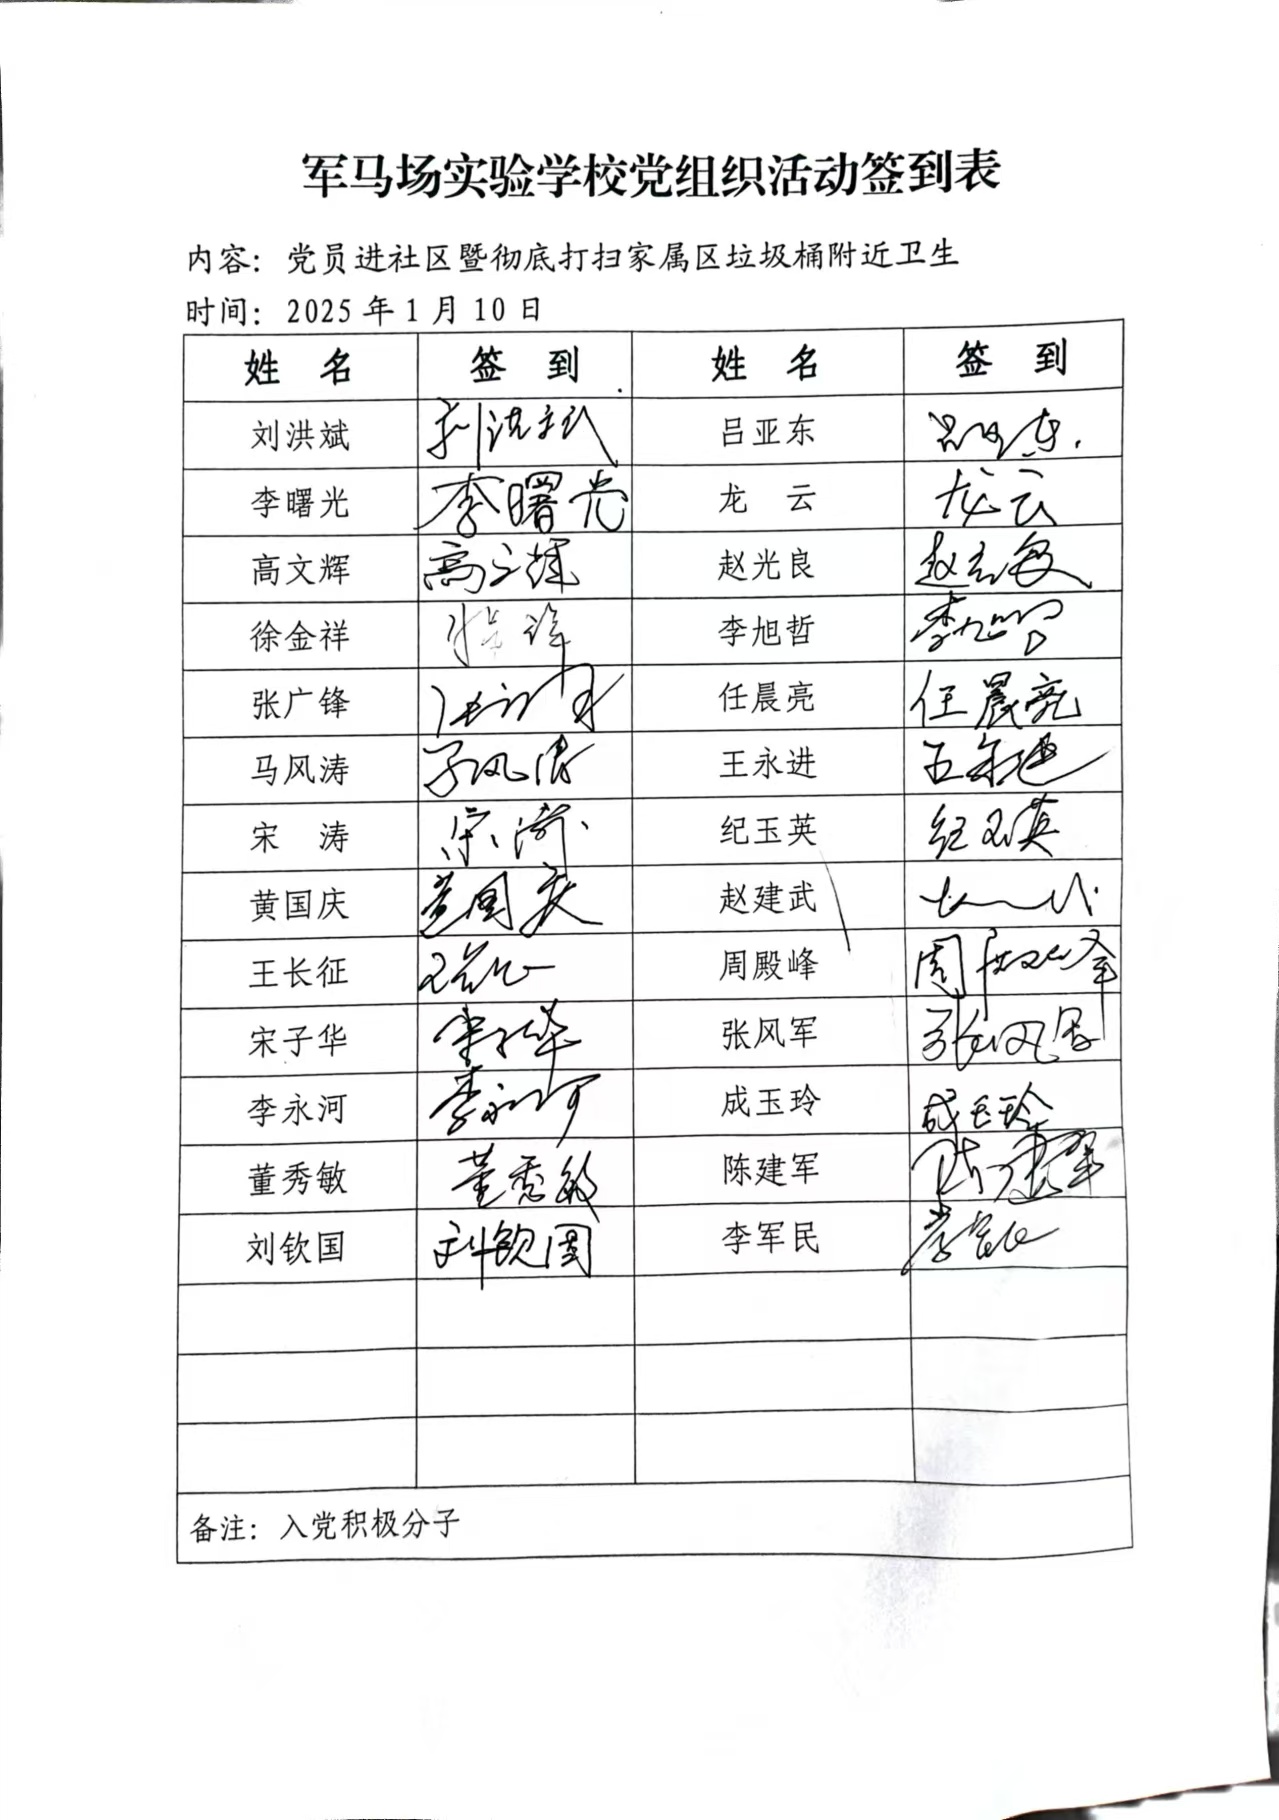 军马场实验学校党组织活动签到表
内容：党员进社区暨彻底打扫家属区垃圾桶附近卫生
时间：2025年1月10日
姓 名 签 到 姓 名 签 到
刘洪斌 刘洪斌 吕亚东 吕亚东
李曙光 李曙光 龙 云 龙云
高文辉 高文辉 赵光良
徐金祥 李旭哲 李旭哲
张广锋 任晨亮 任晨亮
马风涛 马风涛 王永进 王永进
宋 涛 宋涛 纪玉英 纪玉英
黄国庆 黄国庆 赵建武
王长征 周殿峰 周殿峰
宋子华 宋子华 张风军 张风军
李永河 李永河 成玉玲 成玉玲
董秀敏 董秀敏 陈建军 陈建军
刘钦国 刘钦国 李军民 李军民
备注：入党积极分子